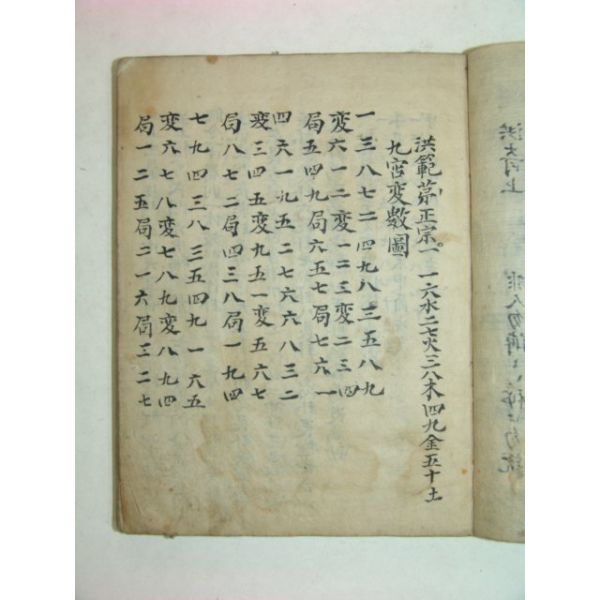 洪範苐正宗一 一六水二七火三八木四九金五十土
九宮変數圖
一三八七二四九八三五八九
変六一二変一二三変二三四
局五四九局六五七局七六一
四六一九五二七六六八三二
変三四五変九五一変五六七
局八七二局四三八局一九四
七九四三八三五四九一六五
変六七八変七八九変八九四
局一二五局二一六局三二七